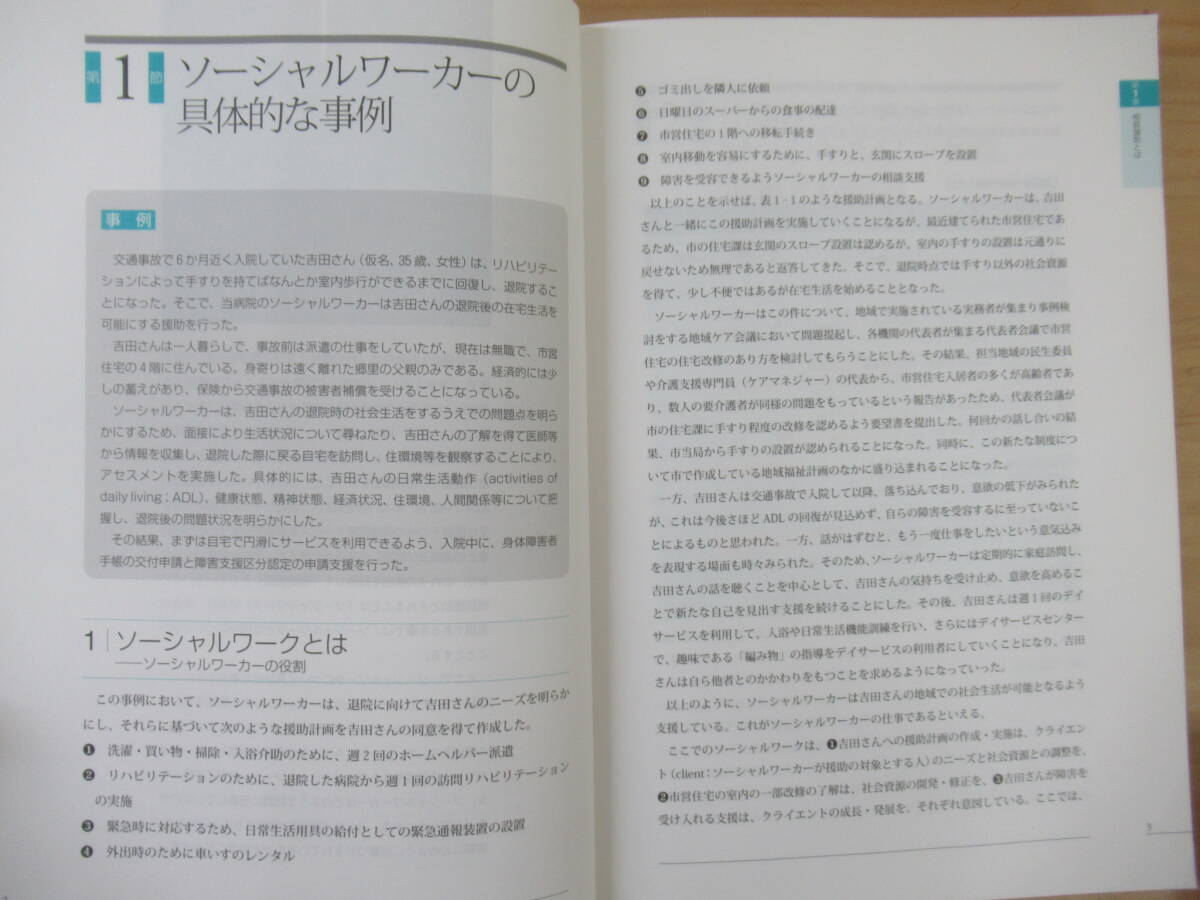 第1節 ソーシャルワーカーの
具体的な事例
事 例
交通事故で6か月近く入院していた吉田さん（仮名、35歳、女性）は、リハビリテー
ションによって手すりを持てばなんとか室内歩行ができるまでに回復し、退院するこ
とになった。そこで、当病院のソーシャルワーカーは吉田さんの退院後の在宅生活を
可能にする援助を行った。
吉田さんは一人暮らしで、事故前は派遣の仕事をしていたが、現在は無職で、市営
住宅の4階に住んでいる。身寄りは遠く離れた郷里の父親のみである。経済的には少
しの蓄えがあり、保険から交通事故の被害者補償を受けることになっている。
ソーシャルワーカーは、吉田さんの退院時の社会生活をするうえでの問題点を明ら
かにするため、面接により生活状況について尋ねたり、吉田さんの了解を得て医師等
から情報を収集し、退院した際に戻る自宅を訪問し、住環境等を観察することにより、
アセスメントを実施した。具体的には、吉田さんの日常生活動作（activities of
daily living：ADL）、健康状態、精神状態、経済状況、住環境、人間関係等について把
握し、退院後の問題状況を明らかにした。
その結果、まずは自宅で円滑にサービスを利用できるよう、入院中に、身体障害者
手帳の交付申請と障害支援区分認定の申請支援を行った。
1 ソーシャルワークとは
――ソーシャルワーカーの役割
この事例において、ソーシャルワーカーは、退院に向けて吉田さんのニーズを明らか
にし、それらに基づいて次のような援助計画を吉田さんの同意を得て作成した。
❶ 洗濯・買い物・掃除・入浴介助のために、週2回のホームヘルパー派遣
❷ リハビリテーションのために、退院した病院から週1回の訪問リハビリテーション
の実施
❸ 緊急時に対応するため、日常生活用具の給付としての緊急通報装置の設置
❹ 外出時のために車いすのレンタル
❺ ゴミ出しを隣人に依頼
❻ 日曜日のスーパーからの食事の配達
❼ 市営住宅の1階への移転手続き
❽ 室内移動を容易にするために、手すりと、玄関にスロープを設置
❾ 障害を受容できるようソーシャルワーカーの相談支援
以上のことを示せば、表1-1のような援助計画となる。ソーシャルワーカーは、吉田
さんと一緒にこの援助計画を実施していくことになるが、最近建てられた市営住宅であ
るため、市の住宅課は玄関のスロープ設置は認めるが、室内の手すりの設置は元通りに
戻せないため無理であると返答してきた。そこで、退院時点では手すり以外の社会資源
を得て、少し不便ではあるが在宅生活を始めることとなった。
ソーシャルワーカーはこの件について、地域で実施されている実務者が集まり事例検
討をする地域ケア会議において問題提起し、各機関の代表者が集まる代表者会議で市営
住宅の住宅改修のあり方を検討してもらうことにした。その結果、担当地域の民生委員
や介護支援専門員（ケアマネジャー）の代表から、市営住宅入居者の多くが高齢者であ
り、数人の要介護者が同様の問題をもっているという報告があったため、代表者会議が
市の住宅課に手すり程度の改修を認めるよう要望書を提出した。何回かの話し合いの結
果、市当局から手すりの設置が認められることになった。同時に、この新たな制度につ
いて市で作成している地域福祉計画のなかに盛り込まれることになった。
一方、吉田さんは交通事故で入院して以降、落ち込んでおり、意欲の低下がみられた
が、これは今後さほどADLの回復が見込めず、自らの障害を受容するに至っていないこ
とによるものと思われた。一方、話がはずむと、もう一度仕事をしたいという意気込み
を表現する場面も時々みられた。そのため、ソーシャルワーカーは定期的に家庭訪問し、
吉田さんの話を聴くことを中心として、吉田さんの気持ちを受け止め、意欲を高めるこ
とで新たな自己を見出す支援を続けることにした。その後、吉田さんは週1回のデイ
サービスを利用して、入浴や日常生活機能訓練を行い、さらにはデイサービスセンター
で、趣味である「編み物」の指導をデイサービスの利用者にしていくことになり、吉田
さんは自ら他者とのかかわりをもつことを求めるようになっていった。
以上のように、ソーシャルワーカーは吉田さんの地域での社会生活が可能となるよう
支援している。これがソーシャルワーカーの仕事であるといえる。
ここでのソーシャルワークは、❶吉田さんへの援助計画の作成・実施は、クライエン
ト（client：ソーシャルワーカーが援助の対象とする人）のニーズと社会資源との調整を、
❷市営住宅の室内の一部改修の了解は、社会資源の開発・修正を、❸吉田さんが障害を
受け入れる支援は、クライエントの成長・発展を、それぞれ意図している。ここでは、
3
第1章 相談援助とは